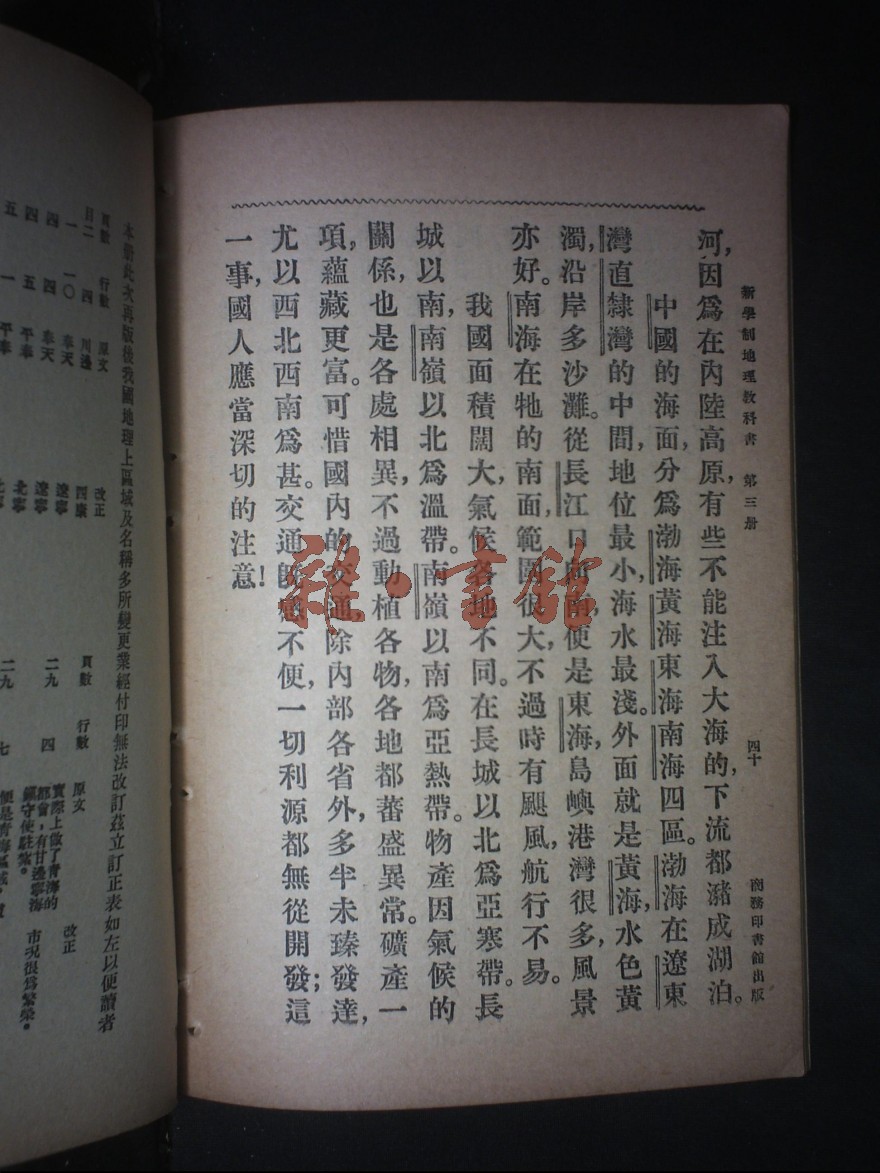 新學制地理教科書 第三册 四十 商務印書館出版
河,因爲在內陸高原,有些不能注入大海的,下流都瀦成湖泊。
中國的海面,分爲渤海黃海東海南海四區。渤海在遼東
灣直隸灣的中間,地位最小,海水最淺。外面就是黃海,水色黃
濁,沿岸多沙灘。從長江口向南,便是東海,島嶼港灣很多,風景
亦好。南海在牠的南面,範圍很大,不過時有颶風,航行不易。
我國面積闊大,氣候各地不同。在長城以北爲亞寒帶。長
城以南,南嶺以北爲溫帶。南嶺以南爲亞熱帶。物產因氣候的
關係,也是各處相異,不過動植各物,各地都蕃盛異常。礦產一
項,蘊藏更富。可惜國內的交通,除內部各省外,多半未臻發達,
尤以西北西南爲甚。交通旣感不便,一切利源都無從開發;這
一事,國人應當深切的注意!
雜·書館
本册此次再版後我國地理上區域及名稱多所變更業經付印無法改訂茲立訂正表如左以便讀者
頁數 行數 原文 改正 頁數 行數 原文 改正
目二 四 川邊 西康 二九 四 實際上做了青海的
都會,有甘邊寧海
鎮守使駐紮。 市況很爲繁榮。
一 一〇 奉天 遼寧
四 四 奉天 遼寧
四 五 平奉 北寧
五 一 平奉 二九 七